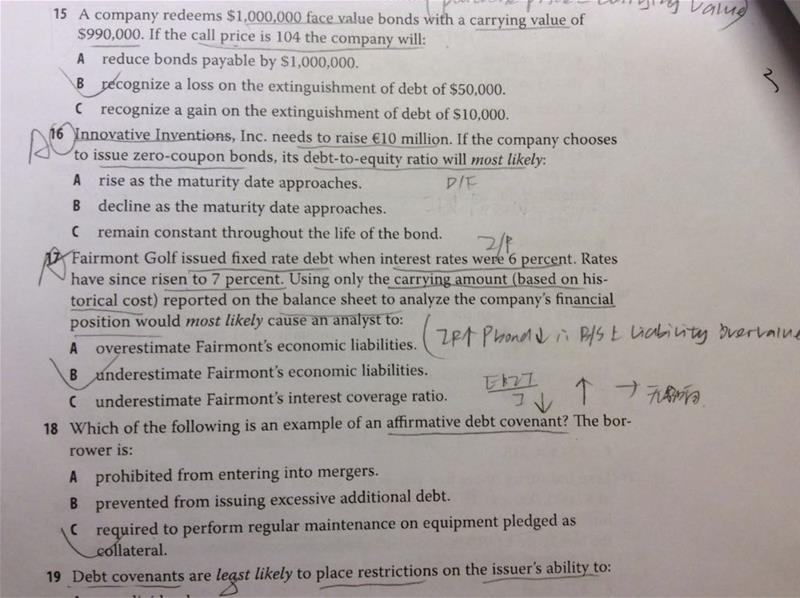 carrying value)
15 A company redeems $1,000,000 face value bonds with a carrying value of
$990,000. If the call price is 104 the company will:
A reduce bonds payable by $1,000,000.
B recognize a loss on the extinguishment of debt of $50,000.
C recognize a gain on the extinguishment of debt of $10,000.
3
A
16 Innovative Inventions, Inc. needs to raise €10 million. If the company chooses
to issue zero-coupon bonds, its debt-to-equity ratio will most likely:
A rise as the maturity date approaches.
D/E
B decline as the maturity date approaches.
C remain constant throughout the life of the bond.
A
17 Fairmont Golf issued fixed rate debt when interest rates were 6 percent. Rates
have since risen to 7 percent. Using only the carrying amount (based on his-
torical cost) reported on the balance sheet to analyze the company's financial
position would most likely cause an analyst to:
A overestimate Fairmont's economic liabilities.
P bond↓ ∴ B/S 上 liability overvalue
B underestimate Fairmont's economic liabilities.
C underestimate Fairmont's interest coverage ratio.
18 Which of the following is an example of an affirmative debt covenant? The bor-
rower is:
A prohibited from entering into mergers.
B prevented from issuing excessive additional debt.
C required to perform regular maintenance on equipment pledged as
collateral.
19 Debt covenants are least likely to place restrictions on the issuer's ability to: